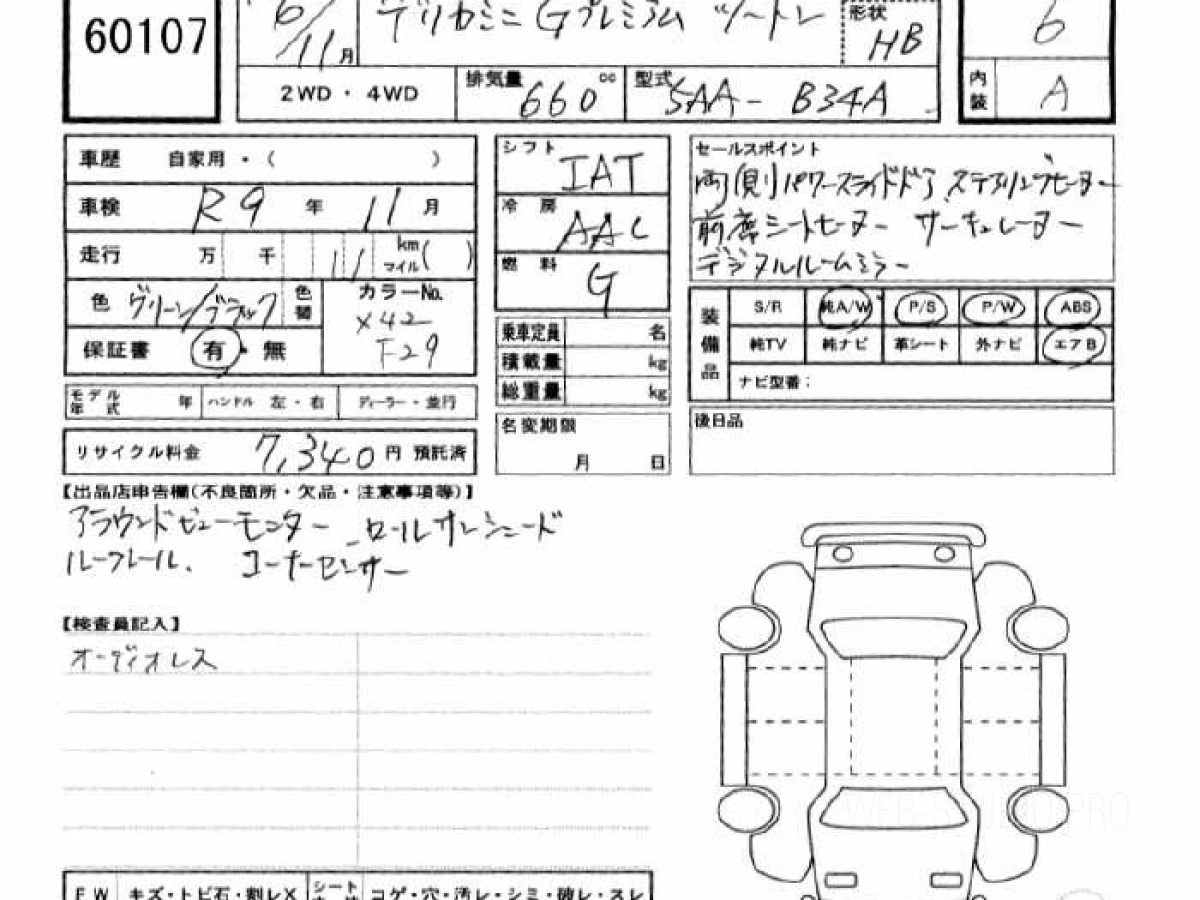 60107
6/11月
デリカミニ Gプレミアム ツートン
形状 HB
6
2WD・4WD
排気量 660cc
型式 5AA- B34A
内装 A
車歴 自家用・( )
車検 R9年 11月
走行 万 千 11 km マイル( )
色 グリーン/ブラック 色替
カラーNo. X42 F29
保証書 有・無
モデル年式 年 ハンドル 左・右 ディーラー・並行
リサイクル料金 7,340円 預託済
シフト IAT
冷房 AAC
燃料 G
乗車定員 名
積載量 kg
総重量 kg
名変期限 月 日
セールスポイント
両側パワースライドドア ステアリングヒーター
前席シートヒーター サーキュレーター
デジタルルームミラー
装備品
S/R 純A/W P/S P/W ABS
純TV 純ナビ 革シート 外ナビ エアB
ナビ型番:
後日品
【出品店申告欄(不良箇所・欠品・注意事項等)】
アラウンドビューモニター ロールサンシェード
ルーフレール、 コーナーセンサー
【検査員記入】
オーディオレス
FW キズ・トビ石・割レX シート コゲ・穴・汚レ・シミ・破レ・スレ